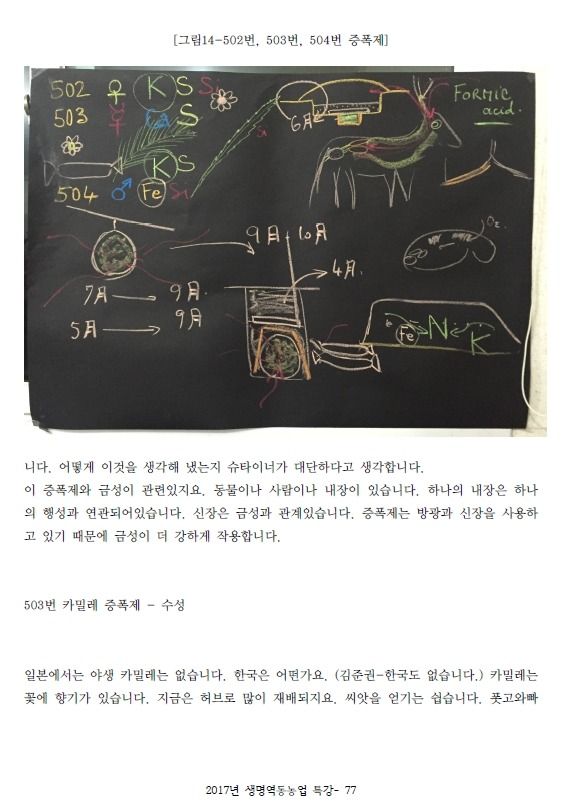 [그림14-502번, 503번, 504번 증폭제]
502 ♀ K S Si
503 ☿ Ca S
K S
504 ♂ Fe Si
6月
FORMIC
acid.
9月 10月
4月.
O2
7月 → 9月.
5月 → 9月
Fe N K
니다. 어떻게 이것을 생각해 냈는지 슈타이너가 대단하다고 생각합니다.
이 증폭제와 금성이 관련있지요. 동물이나 사람이나 내장이 있습니다. 하나의 내장은 하나
의 행성과 연관되어있습니다. 신장은 금성과 관계있습니다. 증폭제는 방광과 신장을 사용하
고 있기 때문에 금성이 더 강하게 작용합니다.
503번 카밀레 증폭제 - 수성
일본에서는 야생 카밀레는 없습니다. 한국은 어떤가요. (김준권-한국도 없습니다.) 카밀레는
꽃에 향기가 있습니다. 지금은 허브로 많이 재배되지요. 씨앗을 얻기는 쉽습니다. 풋고와빠
2017년 생명역동농업 특강- 77